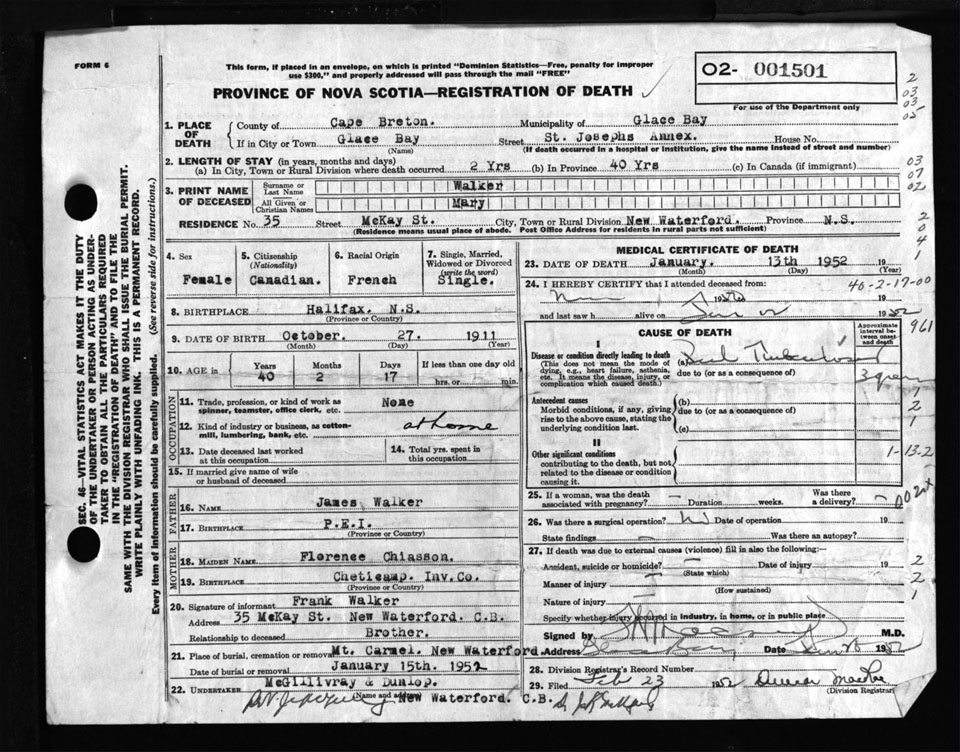 FORM 6
This form, if placed in an envelope, on which is printed "Dominion Statistics—Free, penalty for improper
use $300," and properly addressed will pass through the mail "FREE"
O2- 001501
For use of the Department only
PROVINCE OF NOVA SCOTIA—REGISTRATION OF DEATH
2
03
03
05
03
07
02
2
0
4
1
SEC. 46—VITAL STATISTICS ACT MAKES IT THE DUTY
OF THE UNDERTAKER OR PERSON ACTING AS UNDER-
TAKER TO OBTAIN ALL THE PARTICULARS REQUIRED
IN THE "REGISTRATION OF DEATH" AND TO FILE THE
SAME WITH THE DIVISION REGISTRAR WHO SHALL ISSUE THE BURIAL PERMIT.
WRITE PLAINLY WITH UNFADING INK. THIS IS A PERMANENT RECORD.
Every item of information should be carefully supplied. (See reverse side for instructions.)
1. PLACE OF DEATH
County of Cape Breton. Municipality of Glace Bay
If in City or Town Glace Bay Street St. Josephs Annex. House No.
(Name) (If death occurred in a hospital or institution, give the name instead of street and number)
2. LENGTH OF STAY (in years, months and days)
(a) In City, Town or Rural Division where death occurred 2 Yrs (b) In Province 40 Yrs (c) In Canada (if immigrant)
3. PRINT NAME OF DECEASED
Surname or Last Name Walker
All Given or Christian Names Mary
RESIDENCE No. 35 Street McKay St. City, Town or Rural Division New Waterford. Province N.S.
(Residence means usual place of abode. Post Office Address for residents in rural parts not sufficient)
4. Sex
Female
5. Citizenship
(Nationality)
Canadian.
6. Racial Origin
French
7. Single, Married,
Widowed or Divorced
(write the word)
Single.
8. BIRTHPLACE Halifax. N.S.
(Province or Country)
9. DATE OF BIRTH October. 27. 1911
(Month) (Day) (Year)
10. AGE in Years Months Days If less than one day old
40 2 17 hrs. or min.
OCCUPATION
11. Trade, profession, or kind of work as None
spinner, teamster, office clerk, etc.
12. Kind of industry or business, as cotton- at home
mill, lumbering, bank, etc.
13. Date deceased last worked
at this occupation
14. Total yrs. spent in
this occupation
15. If married give name of wife
or husband of deceased
FATHER
16. NAME James Walker
17. BIRTHPLACE P.E.I.
(Province or Country)
MOTHER
18. MAIDEN NAME Florence Chiasson.
19. BIRTHPLACE Cheticamp. Inv.Co.
(Province or Country)
20. Signature of informant Frank Walker
Address 35 McKay St. New Waterford. C.B.
Relationship to deceased Brother.
21. Place of burial, cremation or removal Mt. Carmel. New Waterford
Date of burial or removal January 15th. 1952
22. UNDERTAKER McGillivray & Dunlop.
(Name and address) New Waterford. C.B.
MEDICAL CERTIFICATE OF DEATH
23. DATE OF DEATH January. 13th 1952
(Month) (Day) (Year)
24. I HEREBY CERTIFY that I attended deceased from: 40-2-17-00
to 19
and last saw h alive on 1952
961
CAUSE OF DEATH
Approximate
interval between
onset
and death
I
Disease or condition directly leading to death (a)
(This does not mean the mode of due to (or as a consequence of)
dying, e.g., heart failure, asthenia,
etc. It means the disease, injury, or
complication which caused death.)
Antecedent causes (b)
Morbid conditions, if any, giving due to (or as a consequence of)
rise to the above cause, stating the
underlying condition last. (c)
II
Other significant conditions
contributing to the death, but not
related to the disease or condition
causing it.
1-13-2
25. If a woman, was the death Was there
associated with pregnancy? — Duration weeks. a delivery? —
26. Was there a surgical operation? Date of operation 19
State findings — Was there an autopsy?
27. If death was due to external causes (violence) fill in also the following:—
Accident, suicide or homicide? Date of injury 19
(State which)
Manner of injury
(How sustained)
Nature of injury
Specify whether injury occurred in industry, in home, or in public place
2
2
1
Signed by M.D.
Address Glace Bay Date 1952
28. Division Registrar's Record Number
29. Filed Feb 23 1952
(Division Registrar)